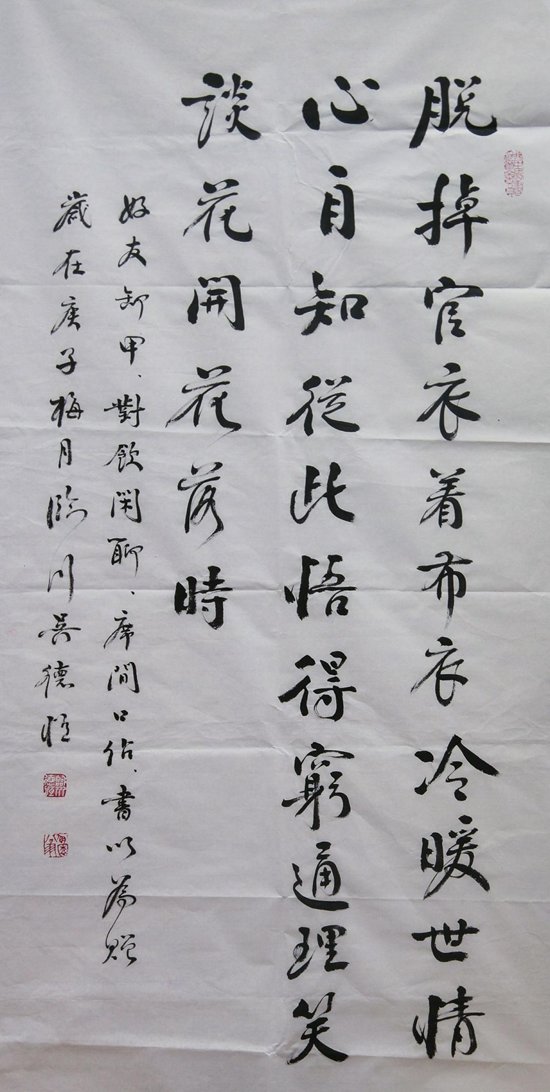 脫掉官衣着布衣冷暖世情
心自知從此悟得窮通理笑
談花開花落時
好友卸甲、對飲閑聊、席間口佔、書以為贈
歲在庚子梅月臨川吳德恒